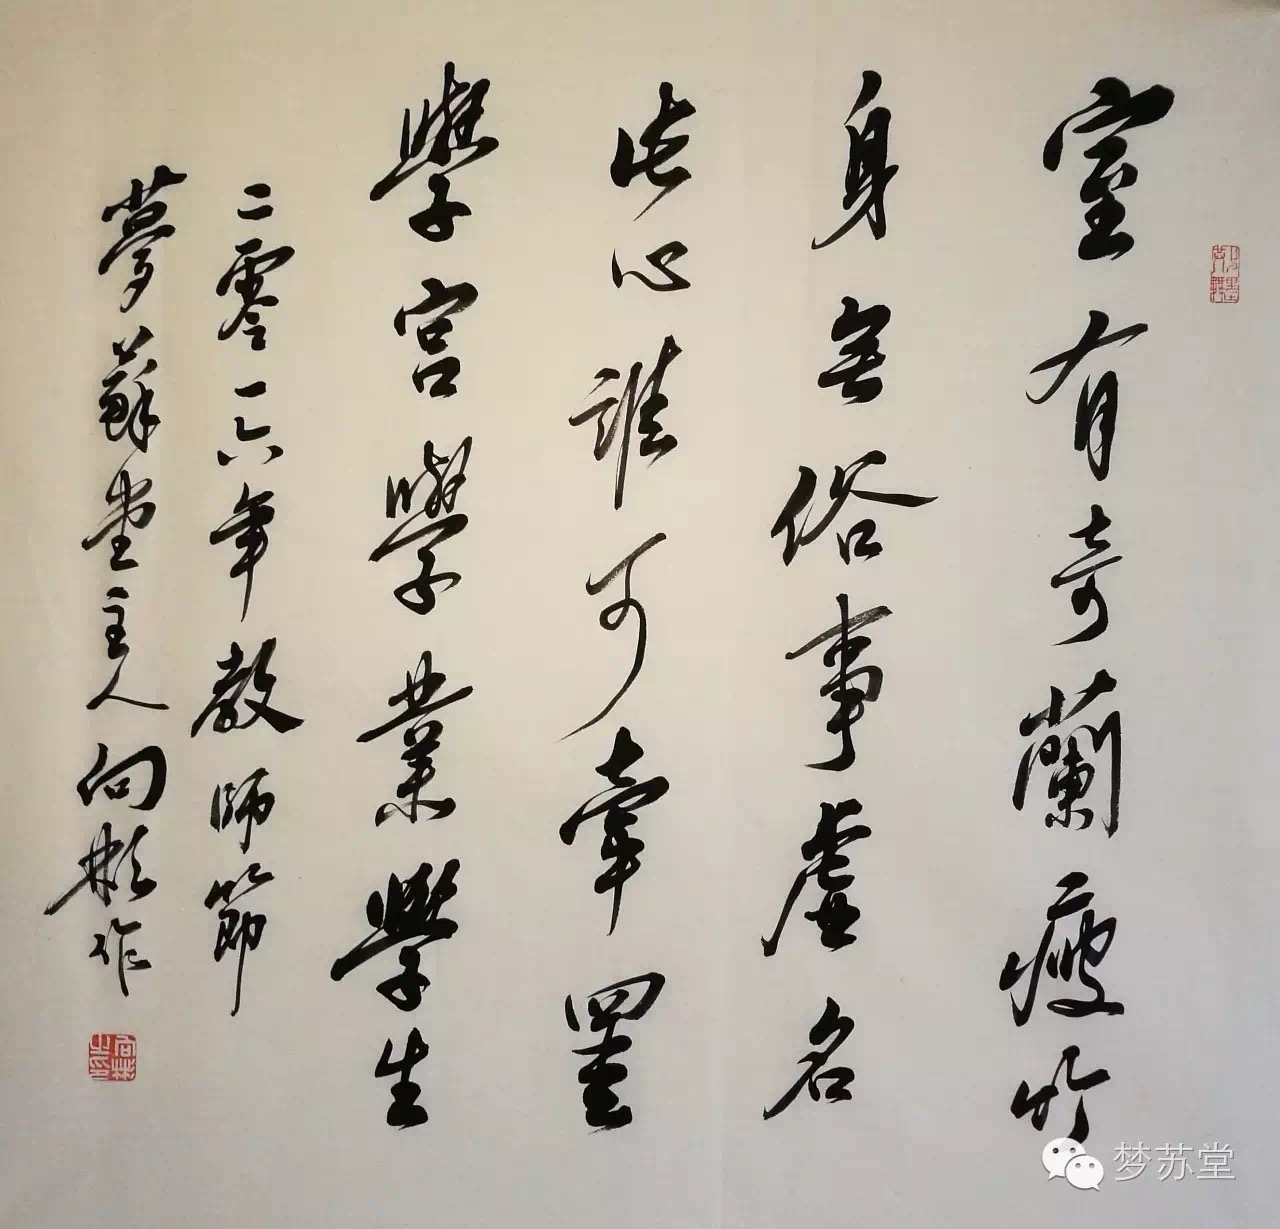 室有奇蘭瘦竹
身無俗事虛名
此心誰可牽罣
學宮學子學業學生
二零一六年教師節
夢蘇堂主人向彬作
梦苏堂